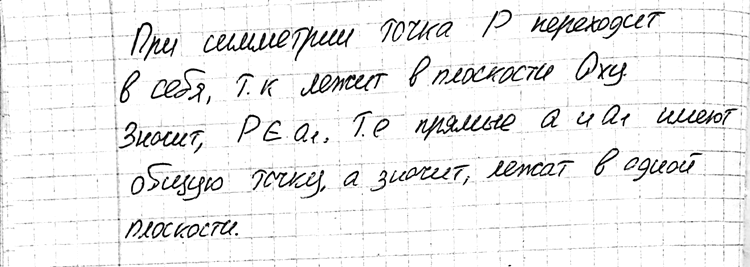 При симметрии точка P переходит
в себя, т.к лежит в плоскости Oxy.
Значит, P ∈ a₁. Т.е прямые a и a₁ имеют
общую точку, а значит, лежат в одной
плоскости.